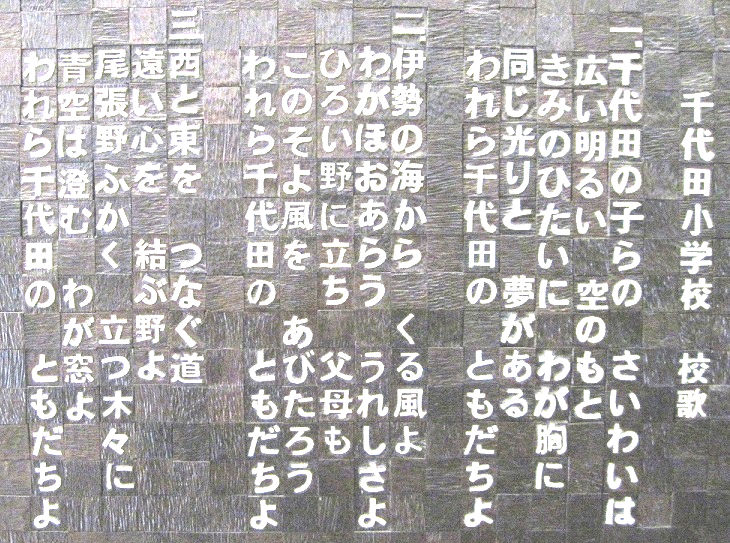 千代田小学校　校歌
一.千代田の子らの　さいわいは
広い明るい　空のもと
きみのひたいに　わが胸に
同じ光りと　夢がある
われら千代田の　ともだちよ
二.伊勢の海から　くる風よ
わがほおあらう　うれしさよ
ひろい野に立ち　父母も
このそよ風を　あびたろう
われら千代田の　ともだちよ
三.西と東を　つなぐ道
遠い心を　結ぶ野よ
尾張野ふかく　立つ木々に
青空は澄む　わが窓よ
われら千代田の　ともだちよ